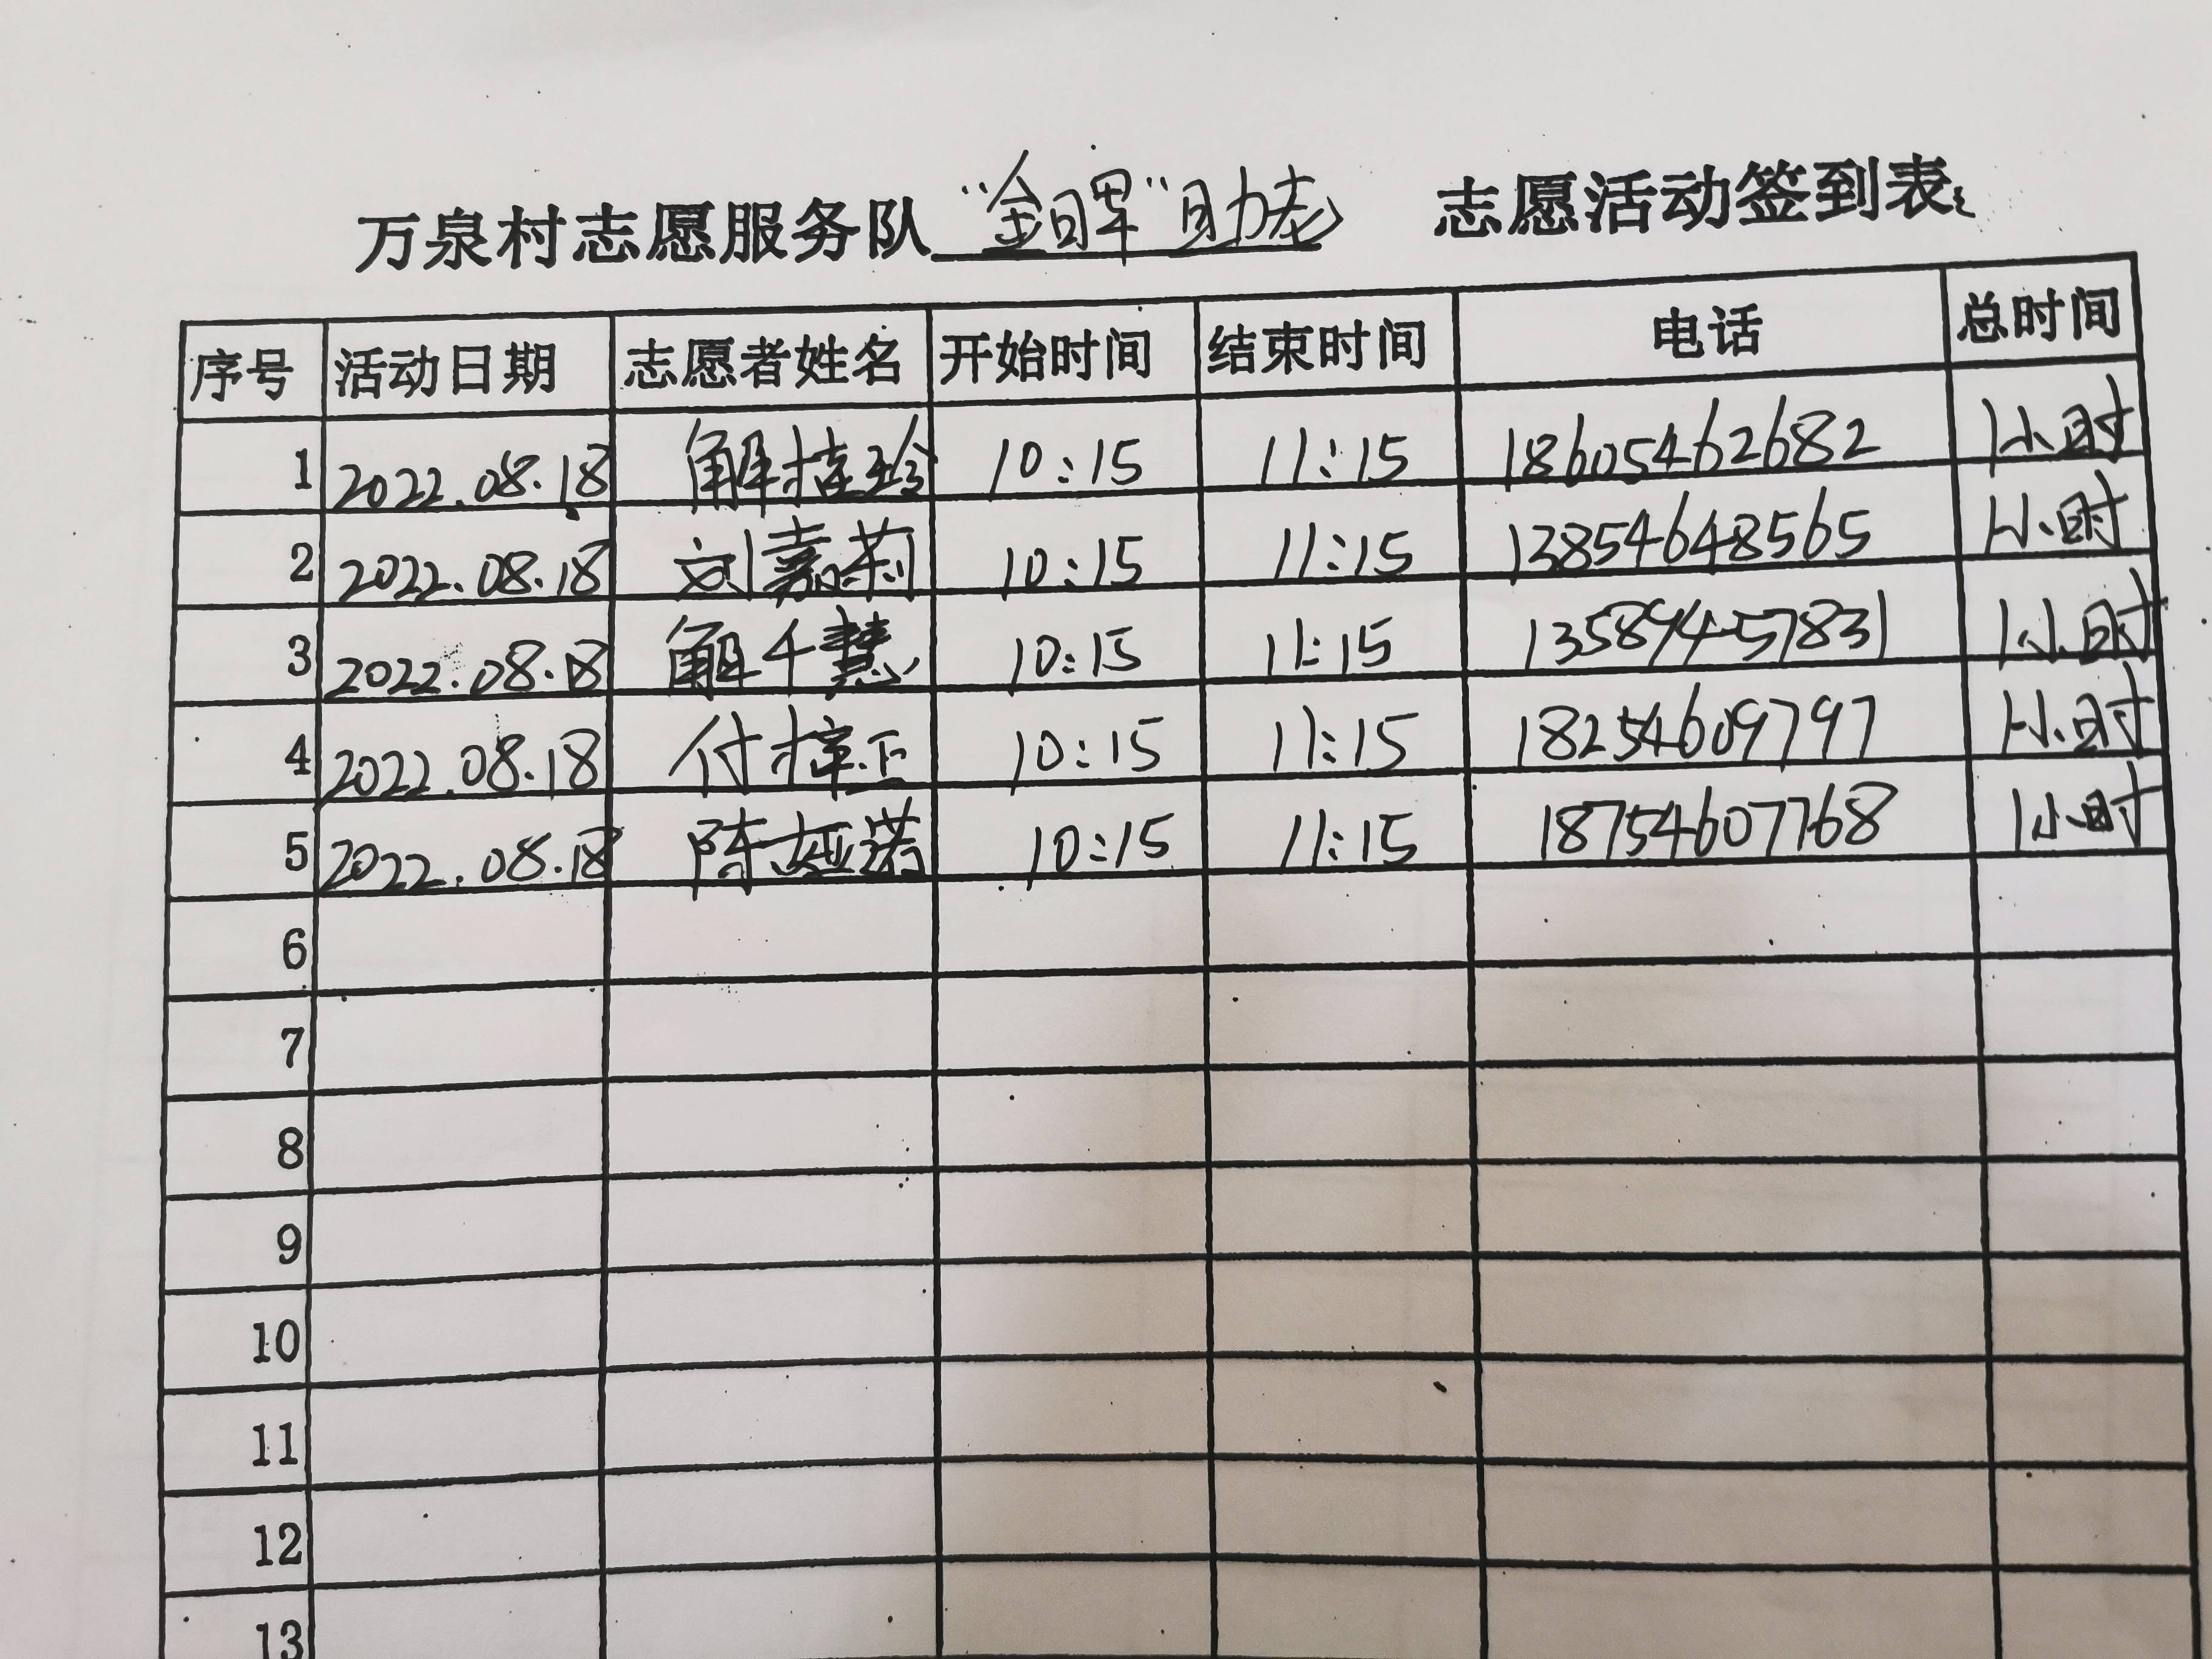 万泉村志愿服务队 "金晖"助老 志愿活动签到表
序号 活动日期 志愿者姓名 开始时间 结束时间 电话 总时间
1 2022.08.18 解桂玲 10:15 11:15 18605462682 1小时
2 2022.08.18 刘嘉莉 10:15 11:15 13854648565 1小时
3 2022.08.18 解千慧 10:15 11:15 13589457831 1小时
4 2022.08.18 付梓正 10:15 11:15 18254609797 1小时
5 2022.08.18 陈娅诺 10:15 11:15 18754607768 1小时
6
7
8
9
10
11
12
13